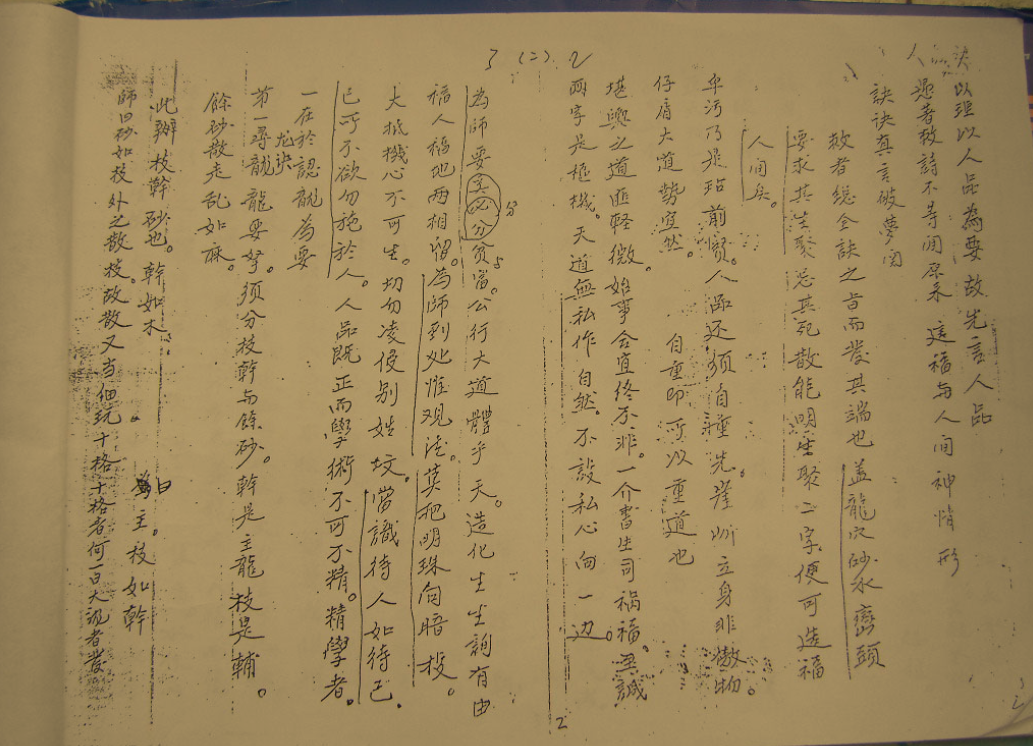 以理以人品為要故先言人品
人愚者救詩不等閒原來 這福与人間神悄形
訣訣真言破夢間
救者總全訣之旨而發其端也 盖龍穴砂水巒頭
要求其生聚忌其死散能明生聚二字便可造福
人间矣。
卑污乃是玷前贤。人品还须自種先。崖岍立身非傲物。
仔肩大道势宜然。 自重即可以重道也
堪輿之道匪輕微。始事合宜终不非。一介書生司祸福。
兩字是樞機。天道無私作自然。不設私心向一边。
3 (二) 2
為師要 必分贫富。公行大道體乎天。造化生生詢有由
福人福地两相留。為師到处惟观法。莫把明珠向暗投。
大抵機心不可生。切勿凌侵别姓坟。當識待人如待己。
己所不欲勿施於人。人品既正而學術不可不精。精學者。
一在於認龍為要
龙訣
第一尋龍龍要好。须分枝幹与餘砂。幹是主龍枝是輔。
餘砂散走乱如麻。
此辨枝幹砂也。幹如木。 主。枝如幹
師曰砂如枝外之散枝。故散又当细玩十格。十格者何一曰大
2